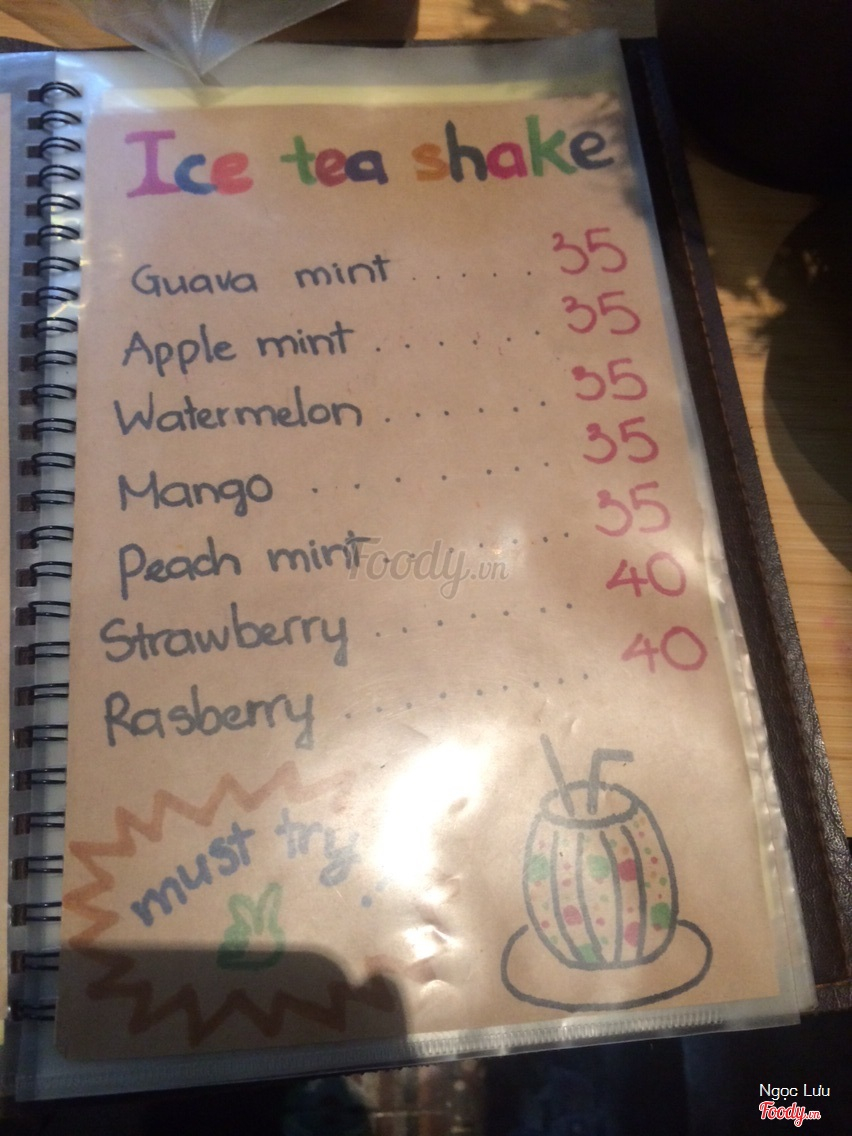 Ice tea shake
Guava mint ..... 35
Apple mint ...... 35
Watermelon ...... 35
Mango ....... 35
Peach mint ....... 35
Strawberry ....... 40
Rasberry ........ 40
must try
Foody.vn
Ngọc Lưu
Foody.vn